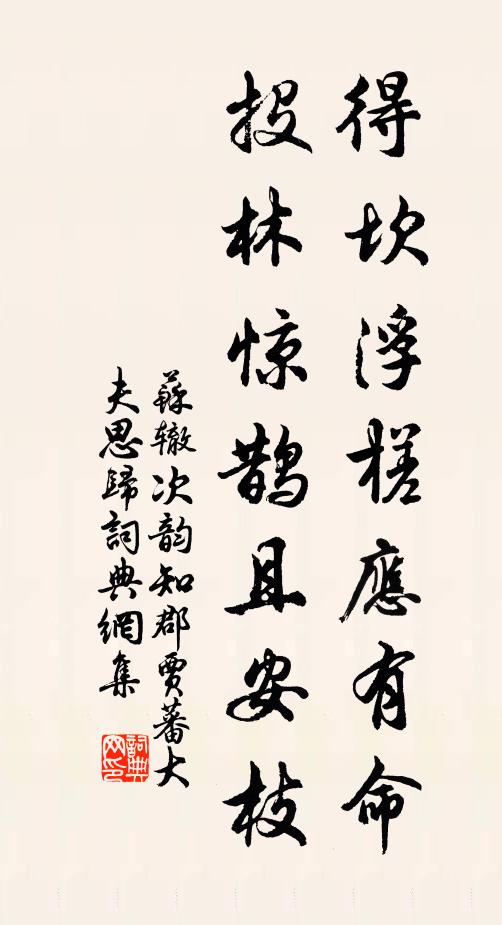 得坎浮槎應有命
投林惊鹊且安枝
蘇辙次韵知郡賈蕃大
夫思歸詞典網集
詞典网印